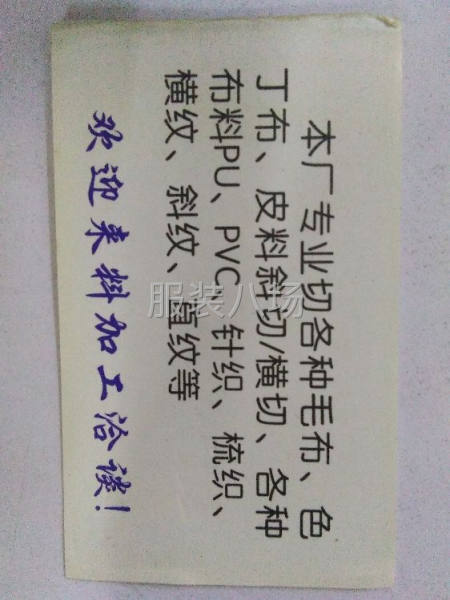 本厂专业切各种毛布、色
丁布、皮料斜切/横切、各种
布料PU、PVC、针织、梳织、
横纹、斜纹、直纹等
欢迎来料加工洽谈!
服装八场